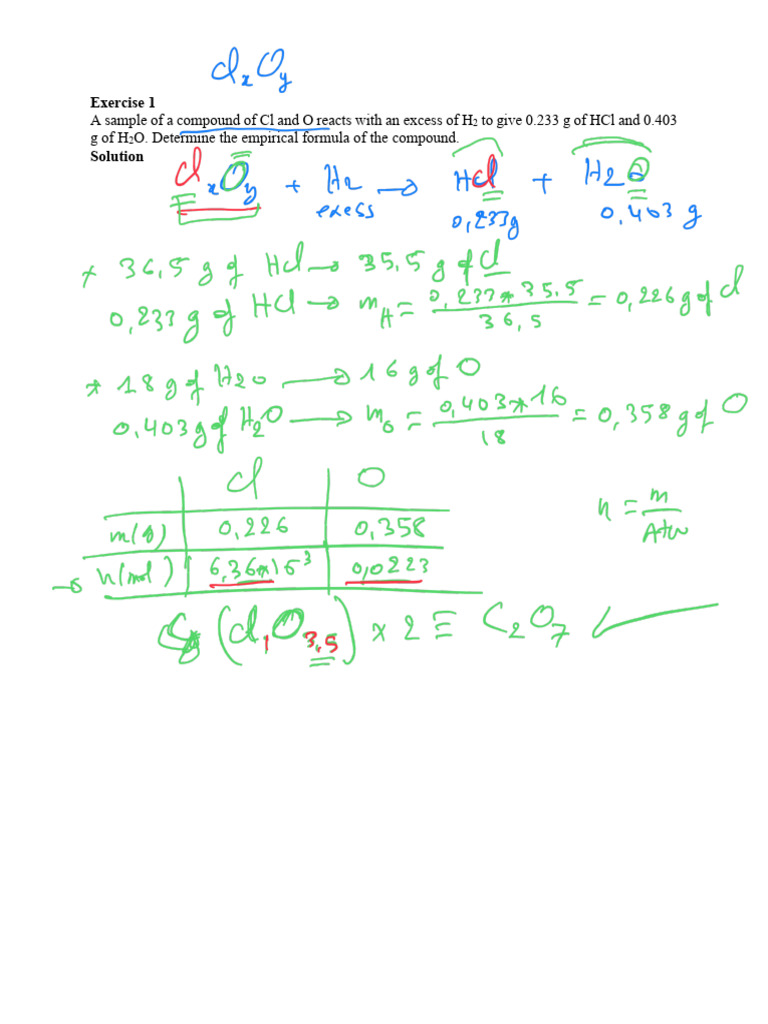 ClxOy
Exercise 1
A sample of a compound of Cl and O reacts with an excess of H2 to give 0.233 g of HCl and 0.403
g of H2O. Determine the empirical formula of the compound.
Solution
ClxOy + H2 → HCl + H2O
exess 0,233g 0,403 g
* 36,5 g of HCl → 35,5 g of Cl
0,233 g of HCl → mH = 0,233*35,5 / 36,5 = 0,226 g of Cl
* 18 g of H2O → 16 g of O
0,403 g of H2O → mO = 0,403*16 / 18 = 0,358 g of O
Cl O
m(g) 0,226 0,358
n = m / Atw
→ n(mol) 6,36*10^-3 0,0223
(Cl1O3,5) × 2 ≡ C2O7